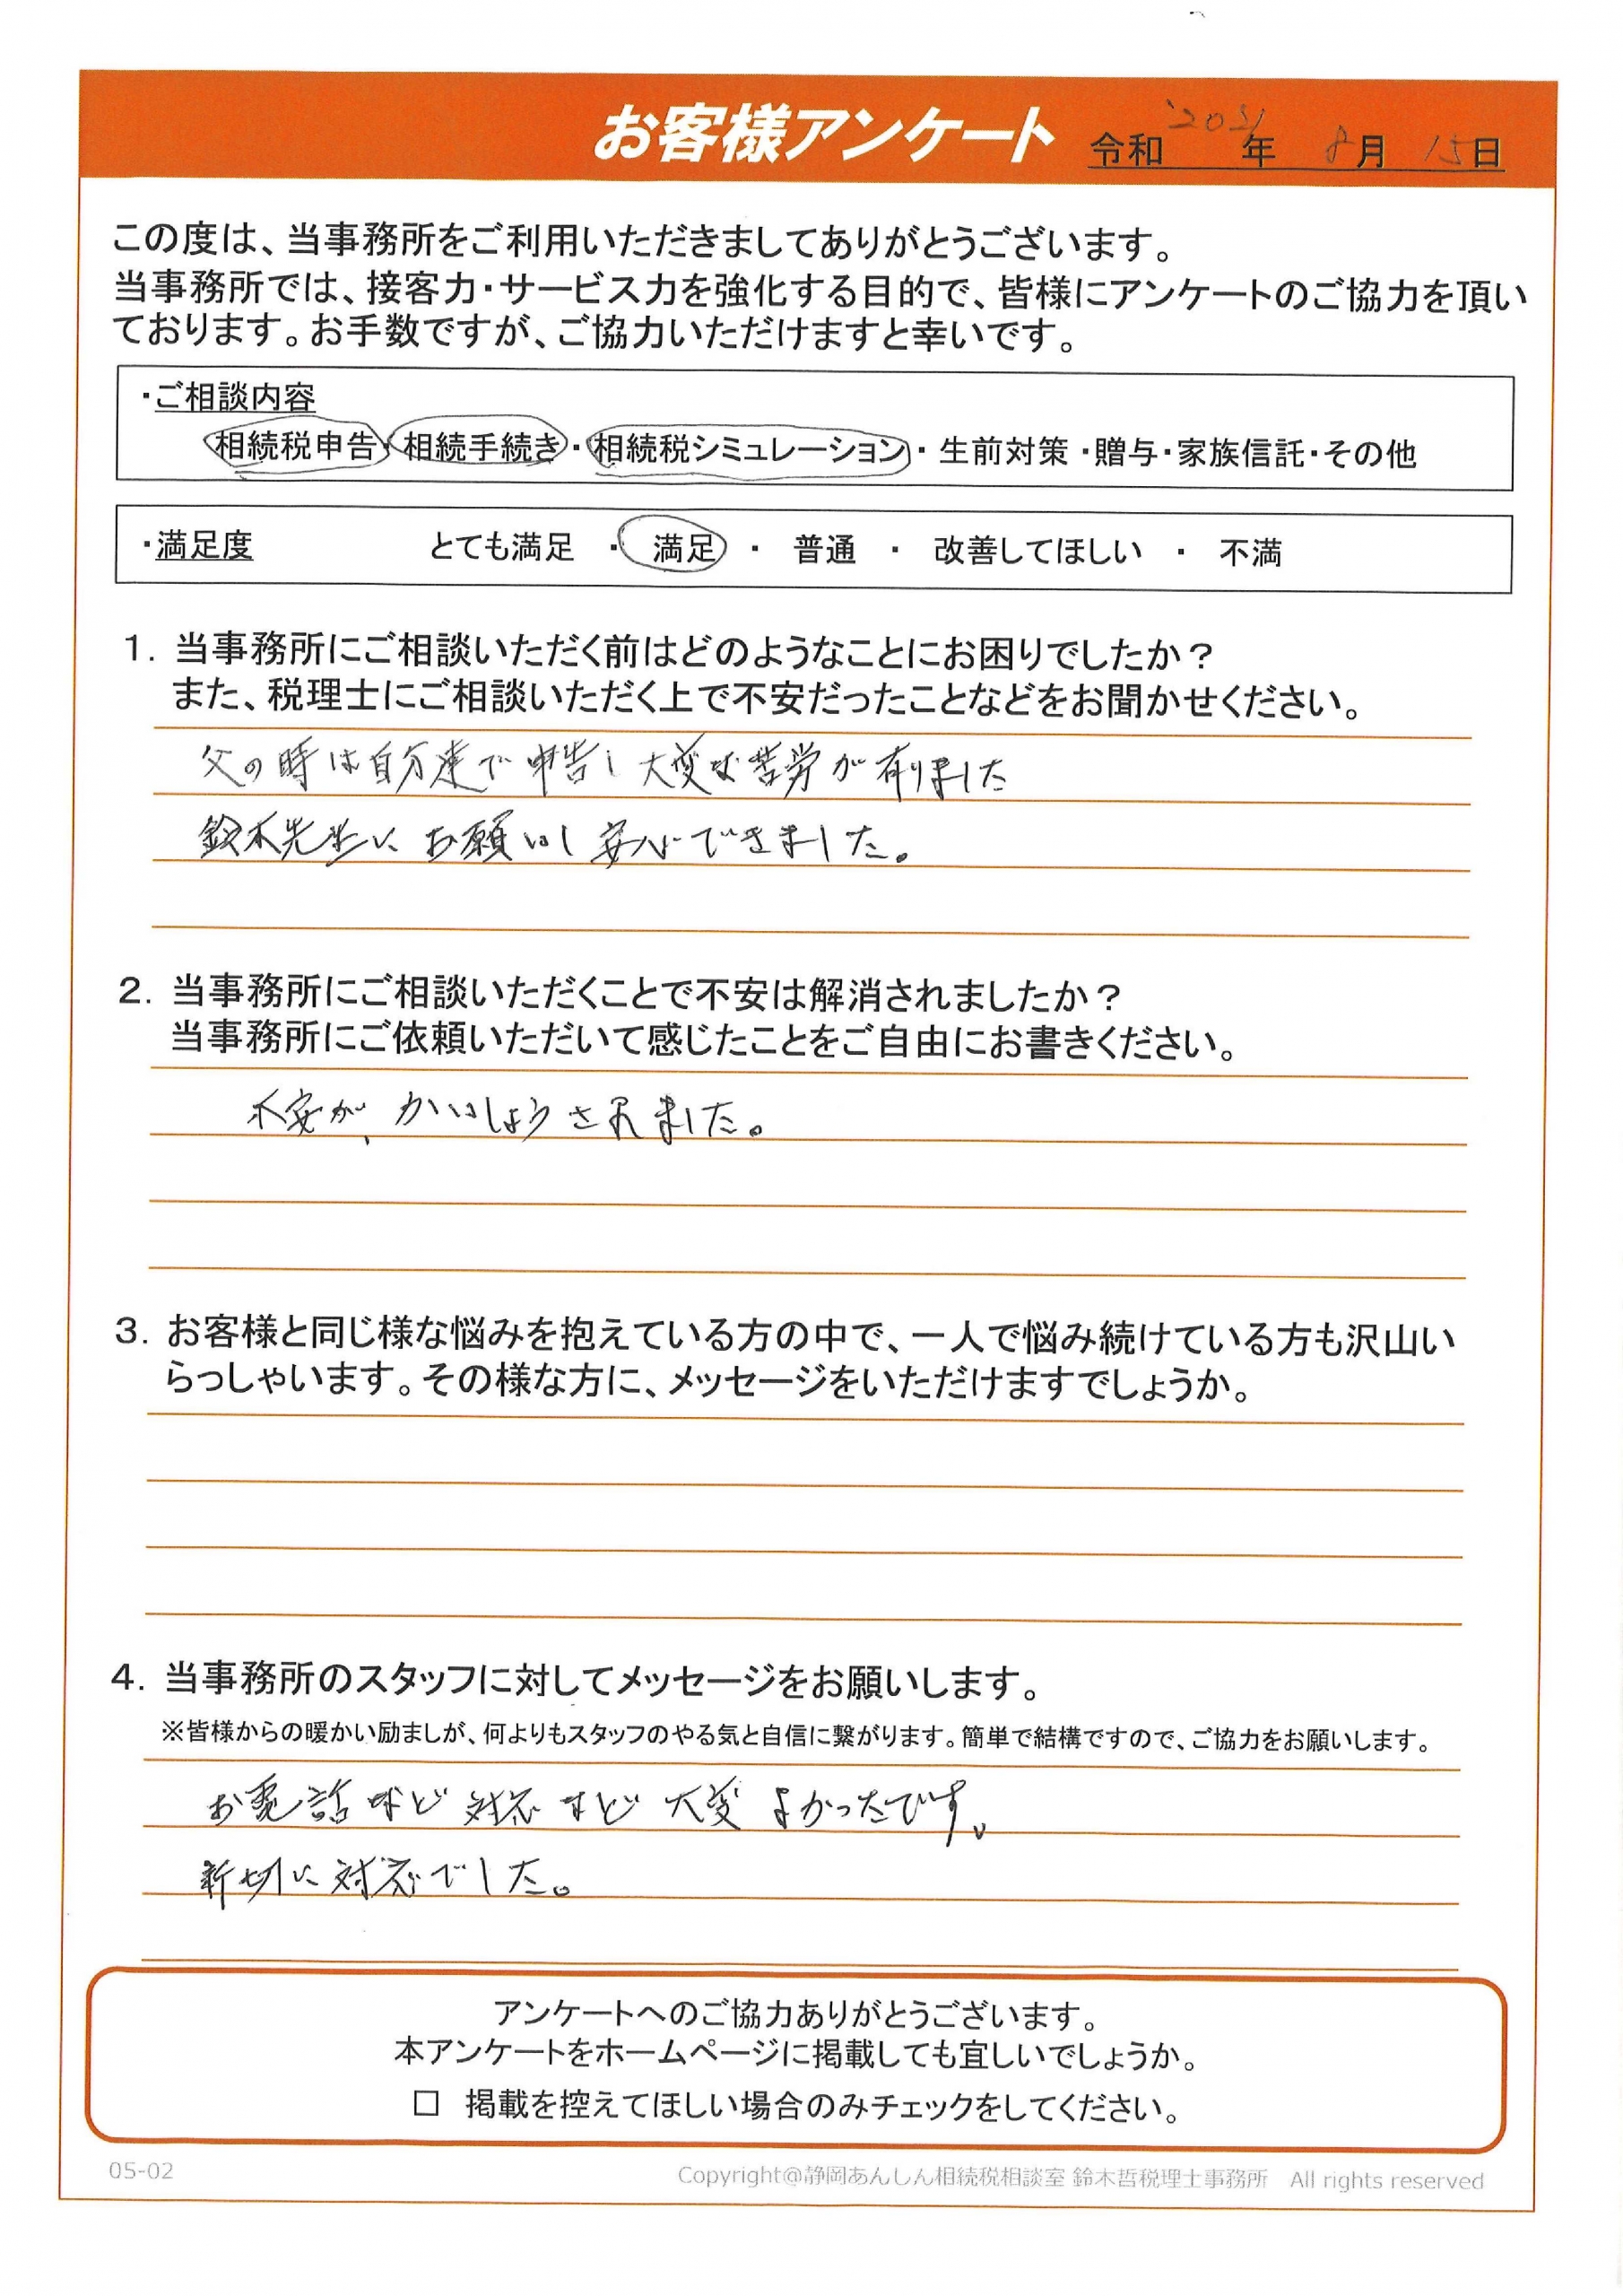 お客様アンケート 令和 '2021年 8月 15日
この度は、当事務所をご利用いただきましてありがとうございます。
当事務所では、接客力・サービス力を強化する目的で、皆様にアンケートのご協力を頂い
ております。お手数ですが、ご協力いただけますと幸いです。
・ご相談内容
相続税申告・相続手続き・相続税シミュレーション・生前対策・贈与・家族信託・その他
・満足度 とても満足 ・ 満足 ・ 普通 ・ 改善してほしい ・ 不満
1. 当事務所にご相談いただく前はどのようなことにお困りでしたか？
また、税理士にご相談いただく上で不安だったことなどをお聞かせください。
父の時は自分達で申告し大変な苦労が有りました
鈴木先生にお願いし安心できました。
2. 当事務所にご相談いただくことで不安は解消されましたか？
当事務所にご依頼いただいて感じたことをご自由にお書きください。
不安が、かいしょうされました。
3. お客様と同じ様な悩みを抱えている方の中で、一人で悩み続けている方も沢山い
らっしゃいます。その様な方に、メッセージをいただけますでしょうか。
4. 当事務所のスタッフに対してメッセージをお願いします。
※皆様からの暖かい励ましが、何よりもスタッフのやる気と自信に繋がります。簡単で結構ですので、ご協力をお願いします。
お電話など対応など大変よかったです。
親切に対応でした。
アンケートへのご協力ありがとうございます。
本アンケートをホームページに掲載しても宜しいでしょうか。
□ 掲載を控えてほしい場合のみチェックをしてください。
05-02 Copyright@静岡あんしん相続税相談室 鈴木哲税理士事務所 All rights reserved